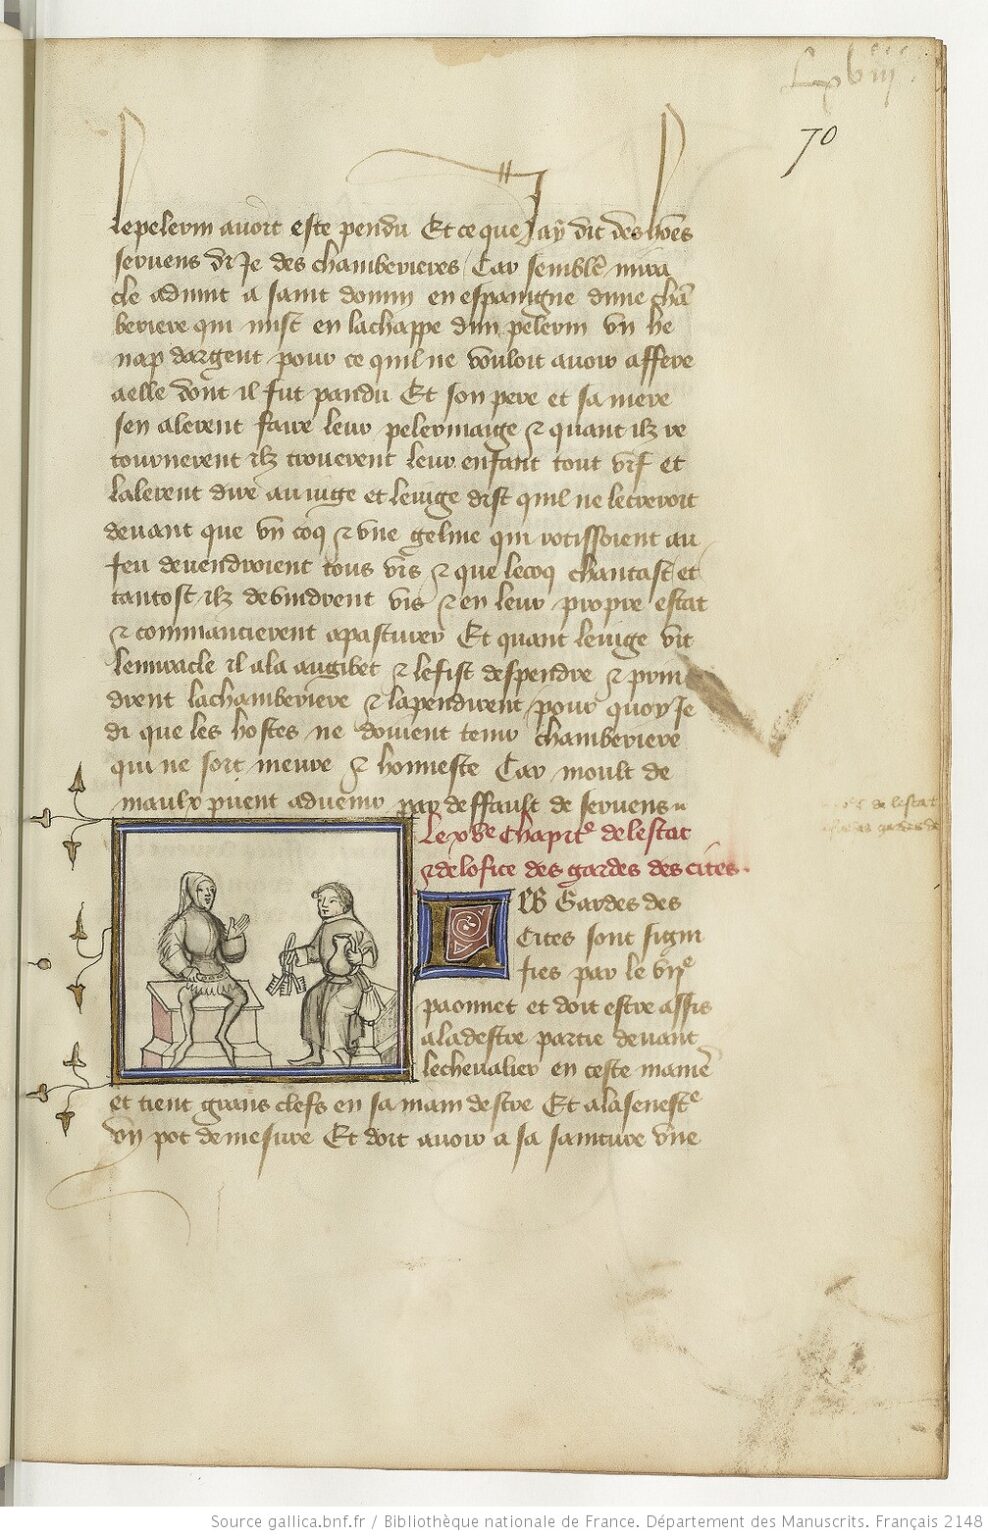 Lxviii
70
lepelerin avoit este pendu Et ce que J ay dit des hoēs
servens di Je des chamberieres Car semblē mira
cle advint a saint domin en espaingne dune chā
beriere qui mist en lachappe dun pelerin vn he
nap dargent pour ce quil ne vouloit avoir affere
aelle dont il fut pandu Et son pere et sa mere
sen alerent faire leur pelerinaige & quant ilz re
tournerent ilz trouverent leur enfant tout vif et
lalerent dire au iuge et leiuge dist quil ne lecreroit
devant que vn coq & vne geline qui rotissoient au
feu devendroient tous vis & que lecoq chantast et
tantost ilz devindrent vis & en leur propre estat
& commancierent apasturer Et quant leiuge vit
lemiracle il ala augibet & lefist despendre & prin
drent lachamberiere & lapendirent pour quoy Je
di que les hostes ne doivent tenir chamberiere
qui ne soit meure & honneste Car moult de
maulx puent advenir par deffault de servens
Le xve Chapitre de lestat
& de lofice des gardes des cites
LES Gardes des
Cites sont signi
fies par le viie
paonnet et doit estre assis
aladestre partie devant
lechevalier en ceste maniē
et tient grans clefs en sa main destre Et alasenestē
vn pot de mesure Et doit avoir a sa sainture vne
de lestat
gardes de
Source gallica.bnf.fr / Bibliothèque nationale de France. Département des Manuscrits. Français 2148